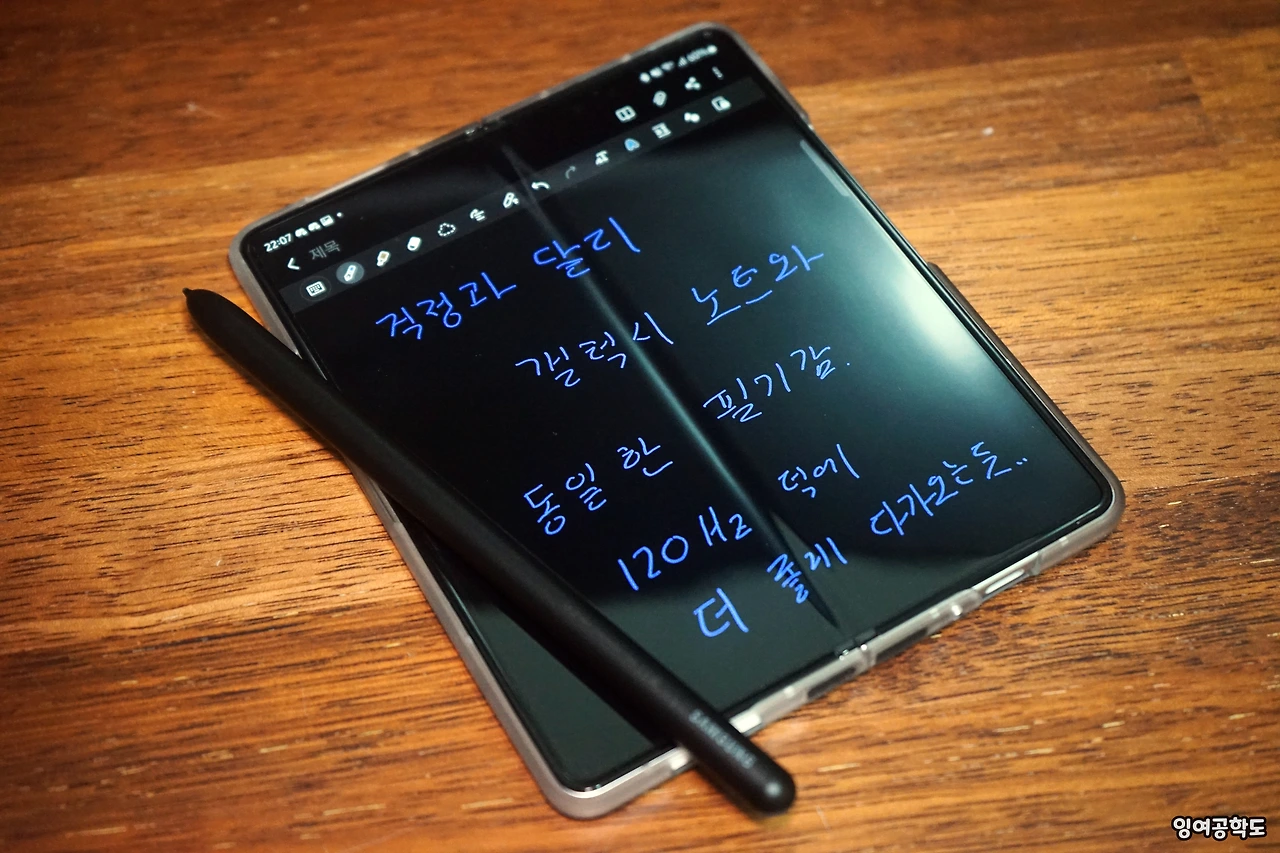 22:07
60%
제목
걱정과 달리
갤럭시 노트와
동일한 필기감.
120Hz 덕에
더 다가오는듯..
SAMSUNG
잉여공학도